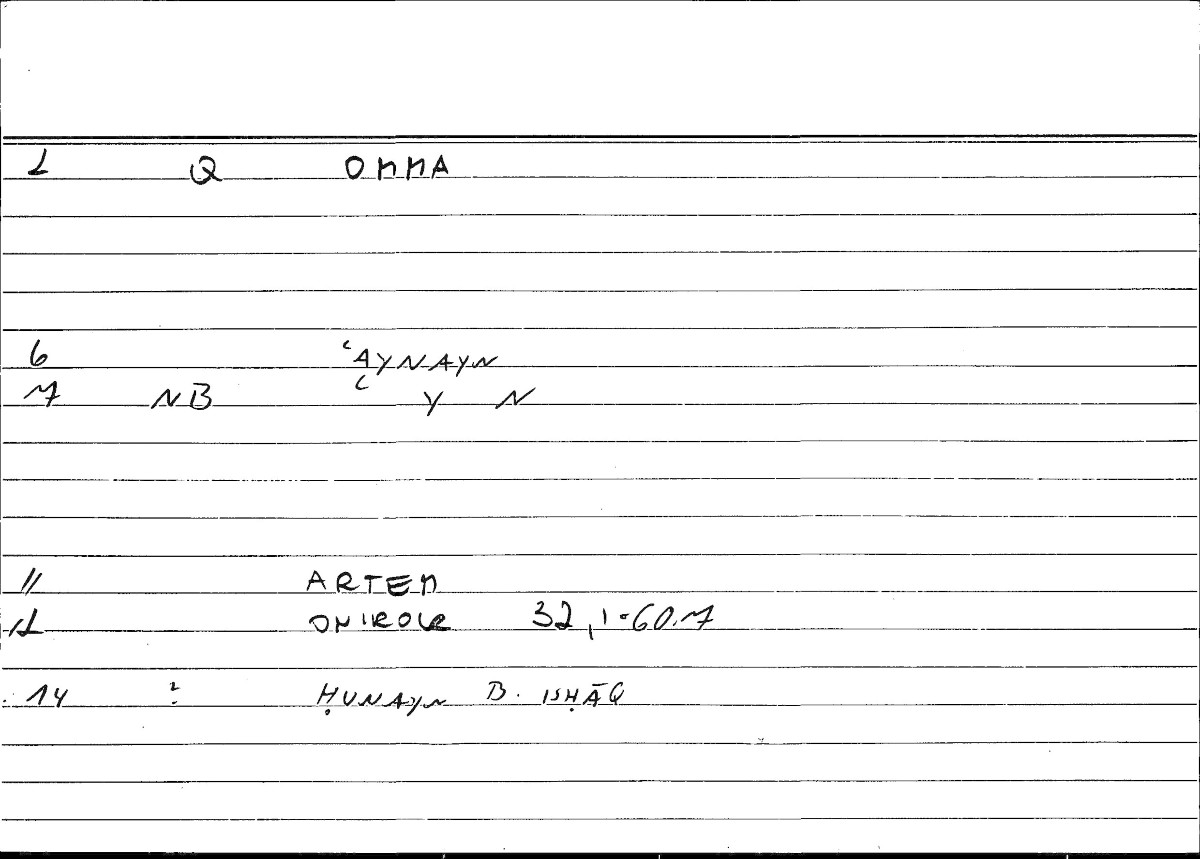 1 Q OMMA
6 ʿAYNAYN
7 NB ʿ Y N
11 ARTEM
12 ONIROCR 32,1-60.7
14 2 ḤUNAYN B. ISḤĀQ